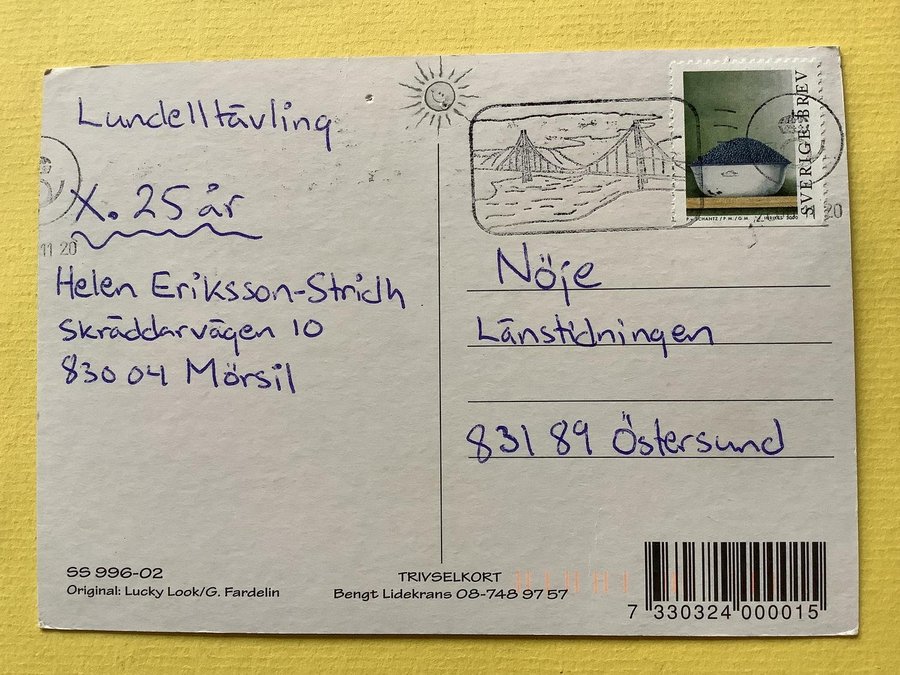 Lundelltävling
X. 25 år
Helen Eriksson-Stridh
Skräddarvägen 10
830 04 Mörsil
11 20
SVERIGE BREV
20
Nöje
Länstidningen
831 89 Östersund
SS 996-02
Original: Lucky Look/G. Fardelin
TRIVSELKORT
Bengt Lidekrans 08-748 97 57
7 330324 000015